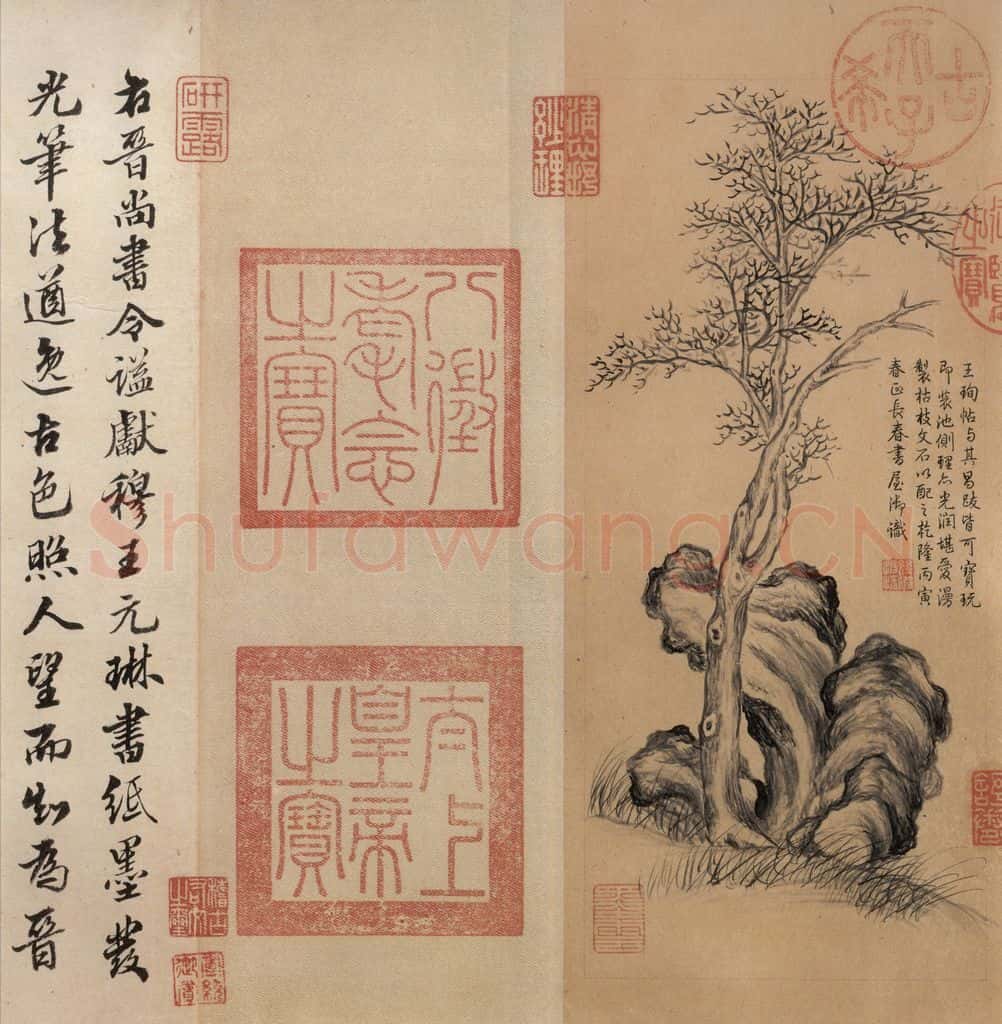 古希天子
王珣帖与其昌跋皆可寶玩
即裝池側理亦光潤堪愛漫
製枯枝文石以配之乾隆丙寅
春正長春書屋御識
八徵耄念之寶
太上皇帝之寶
研露
稽古右文之璽
右晉尚書令謚獻穆王元琳書紙墨發
光筆法遒逸古色照人望而知為晉
Shufawang.CN